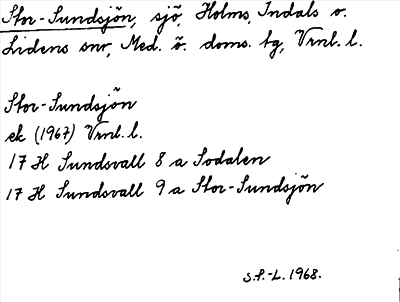 Stor-Sundsjön, sjö, Holms, Indals o.
Lidens snr, Med. ö. doms. tg, Vrnl. l.
Stor-Sundsjön
ek (1967) Vrnl. l.
17 H Sundsvall 8 a Sodalen
17 H Sundsvall 9 a Stor-Sundsjön
S.P.-L. 1968.